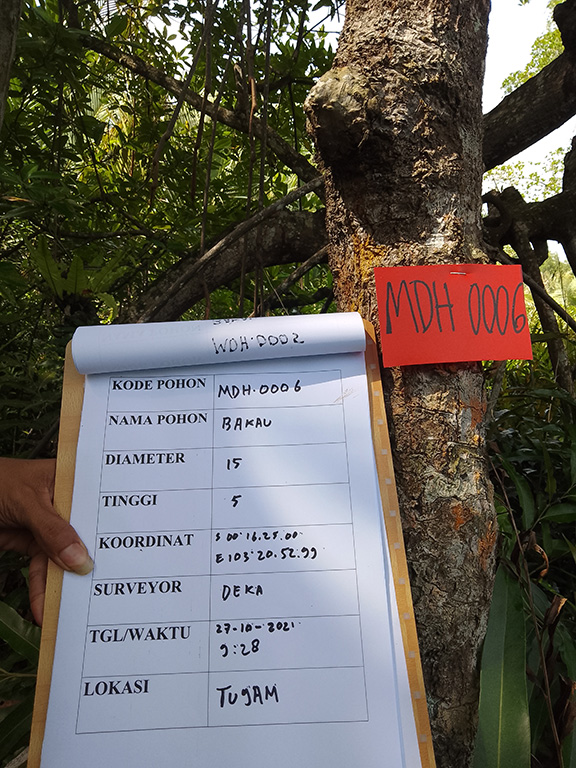 WDH.0002
MDH 0006
KODE POHON MDH.0006
NAMA POHON BAKAU
DIAMETER 15
TINGGI 5
KOORDINAT S 00°16.25.00
E 103°20.52.99
SURVEYOR DEKA
TGL/WAKTU 27-10-2021
9:28
LOKASI TUJAM